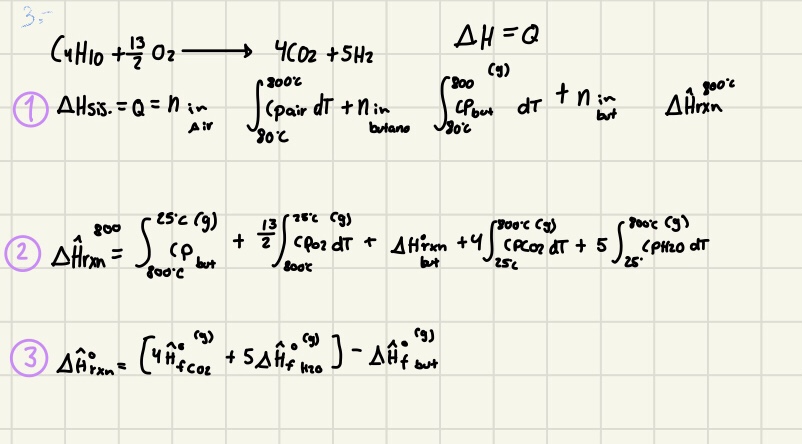 3.-
C4H10 + 13/2 O2 ⟶ 4CO2 + 5H2 ΔH = Q
① ΔHsis. = Q = n in Air ∫_{80°C}^{800°C} Cpair dT + n in butano ∫_{80°C}^{800 (g)} CPbut dT + n in but ΔĤrxn^{800°C}
② ΔĤrxn^{800} = ∫_{800°C}^{25°C (g)} CP but + 13/2 ∫_{800°C}^{25°C (g)} CPO2 dT + ΔĤ°rxn but + 4 ∫_{25C}^{800°C (g)} CPCO2 dT + 5 ∫_{25°}^{800°C (g)} CPH2O dT
③ ΔĤ°rxn = [4Ĥ°f CO2 (g) + 5ΔĤ°f H2O (g)] - ΔĤ°f but (g)